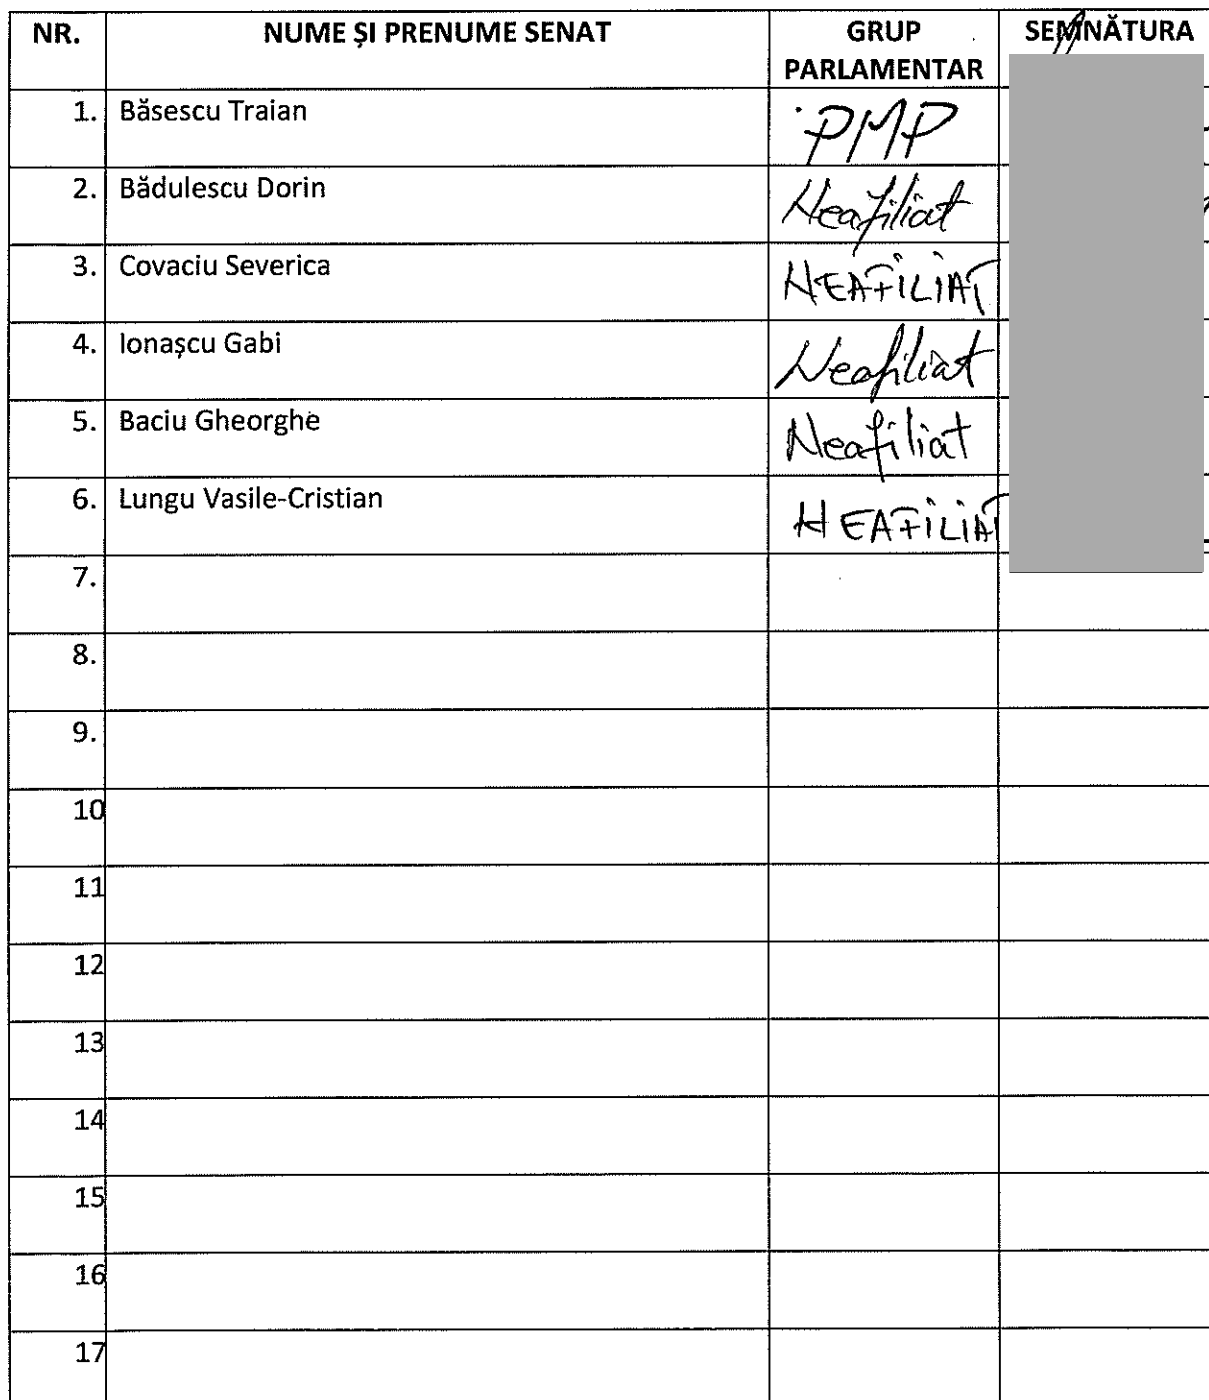 NR. NUME ȘI PRENUME SENAT GRUP PARLAMENTAR SEMNĂTURA
1. Băsescu Traian PMP
2. Bădulescu Dorin Neafiliat
3. Covaciu Severica NEAFILIAT
4. Ionașcu Gabi Neafiliat
5. Baciu Gheorghe Neafiliat
6. Lungu Vasile-Cristian NEAFILIAT
7.
8.
9.
10
11
12
13
14
15
16
17